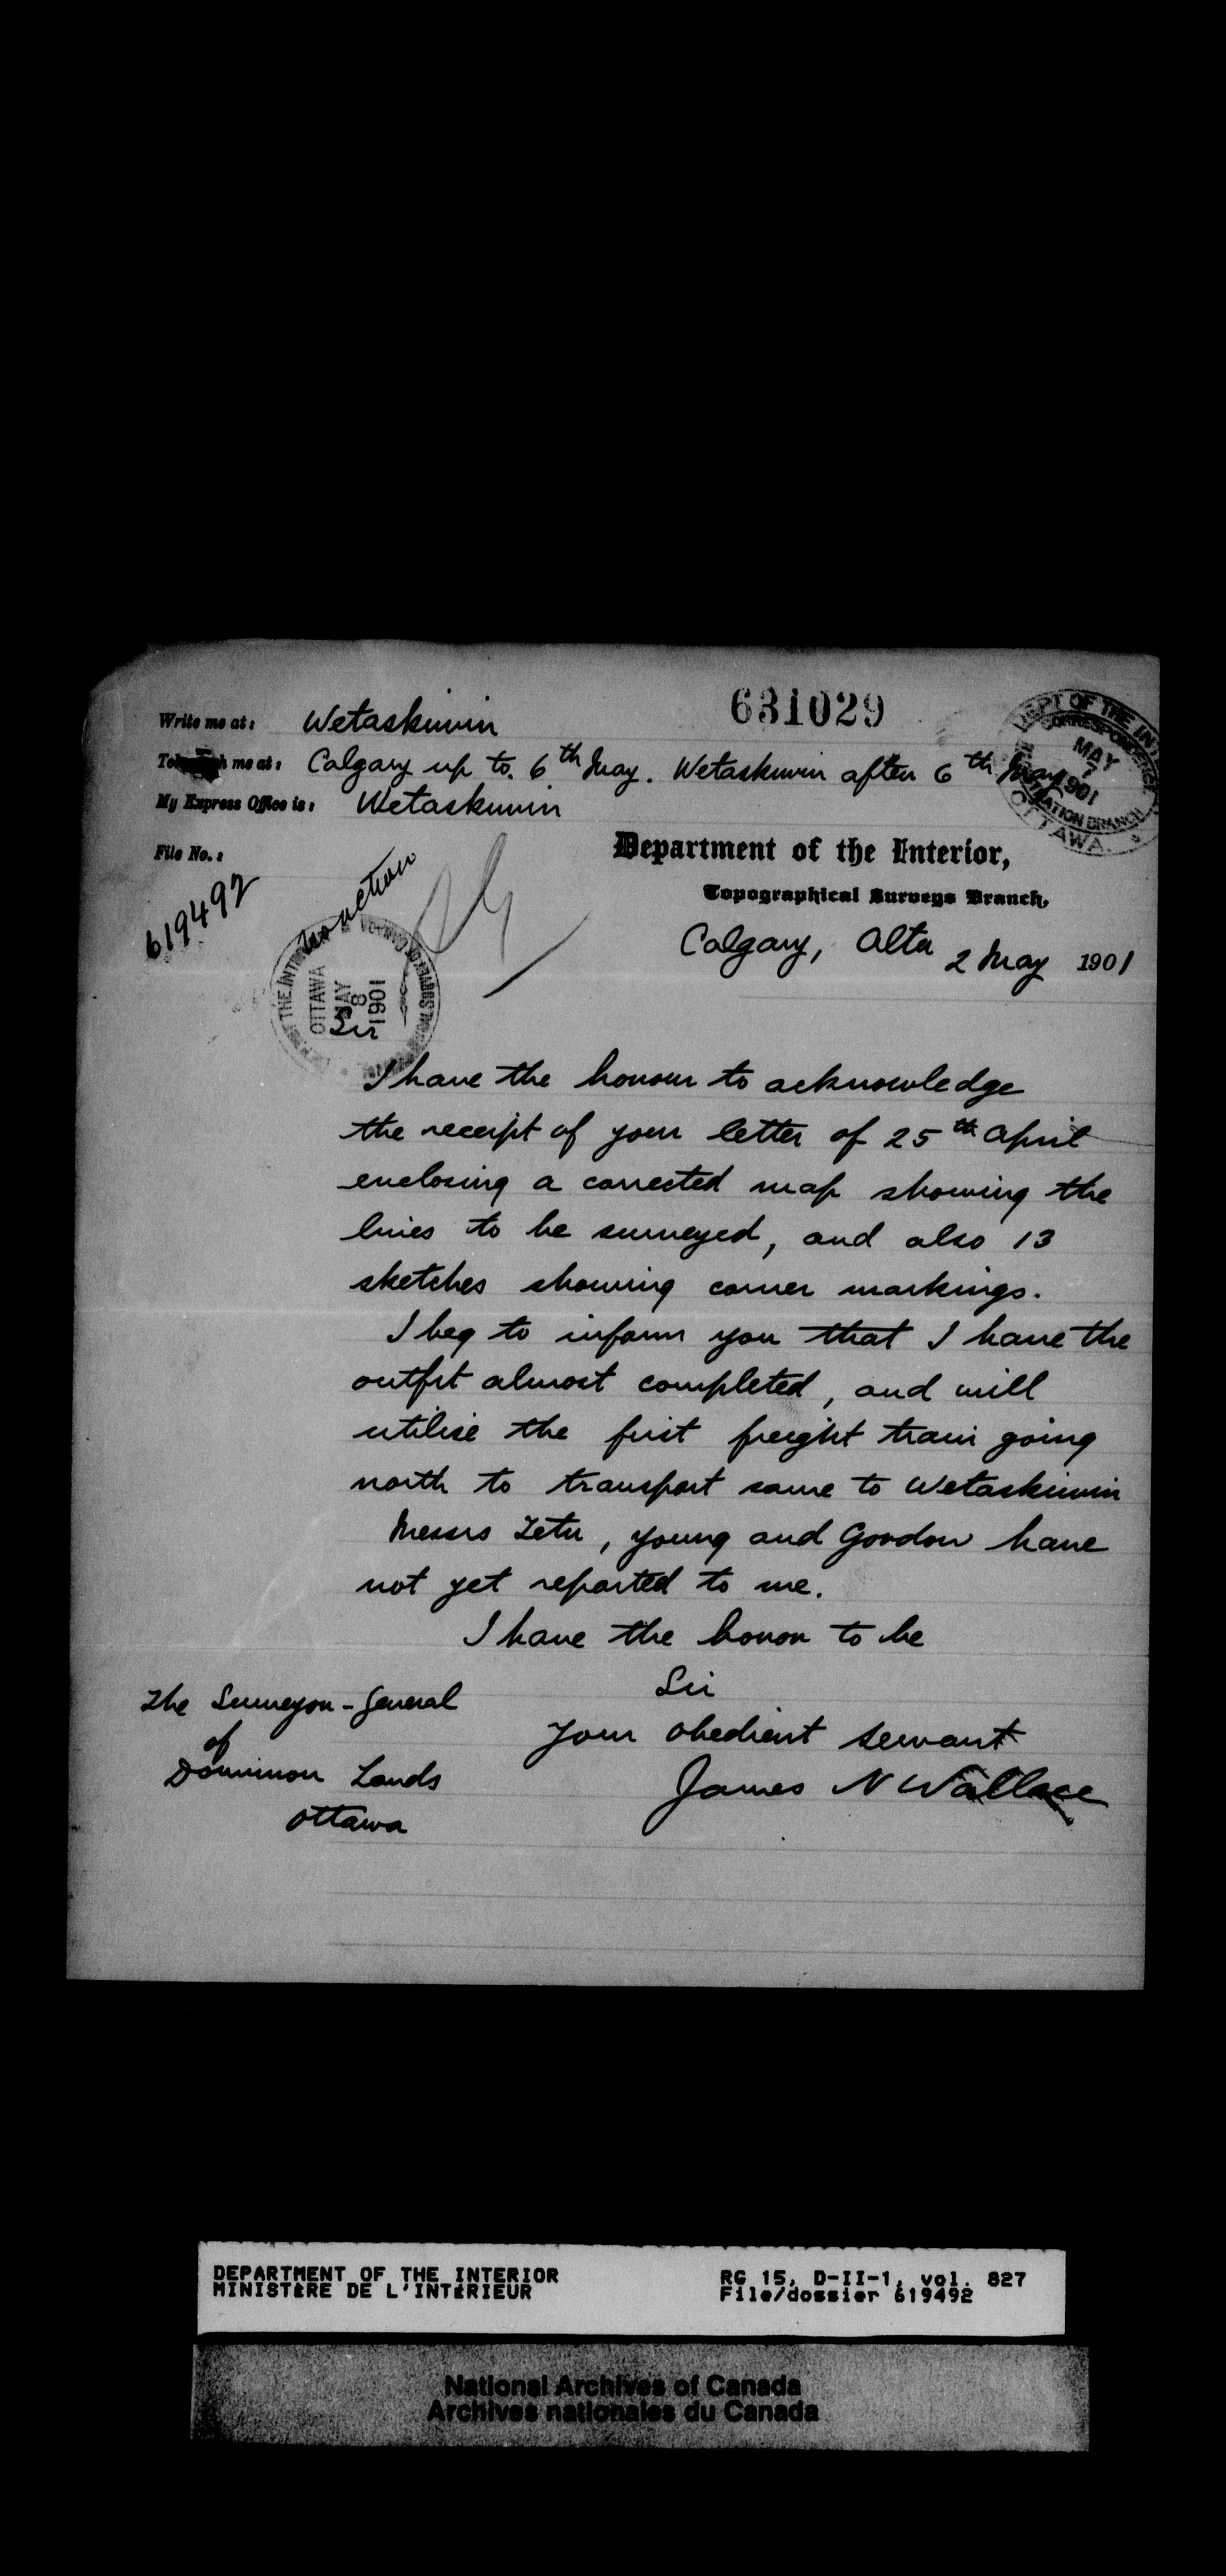 631029
DEPT OF THE INT
CORRESPONDENCE
MAY
7
1901
REGISTRATION BRANCH
OTTAWA.
Write me at: Wetaskiwin
me at: Calgary up to. 6th May. Wetaskiwin after 6th May
My Express Office is: Wetaskiwin
File No.:
619492
No action
Department of the Interior,
Topographical Surveys Branch,
Calgary, Alta 2 May 1901
THE INTERIOR
OTTAWA
MAY
8
1901
Sir
I have the honour to acknowledge
the receipt of your letter of 25th April
enclosing a corrected map showing the
lines to be surveyed, and also 13
sketches showing corner markings.
I beg to inform you that I have the
outfit almost completed, and will
utilise the first freight train going
north to transport same to Wetaskiwin
Messrs Zetu, Young and Gordon have
not yet reported to me.
I have the honor to be
Sir
Your obedient servant
James N Wallace
The Surveyor-General
of
Dominion Lands
Ottawa
DEPARTMENT OF THE INTERIOR
MINISTÈRE DE L'INTÉRIEUR
RG 15, D-II-1, vol. 827
File/dossier 619492
National Archives of Canada
Archives nationales du Canada